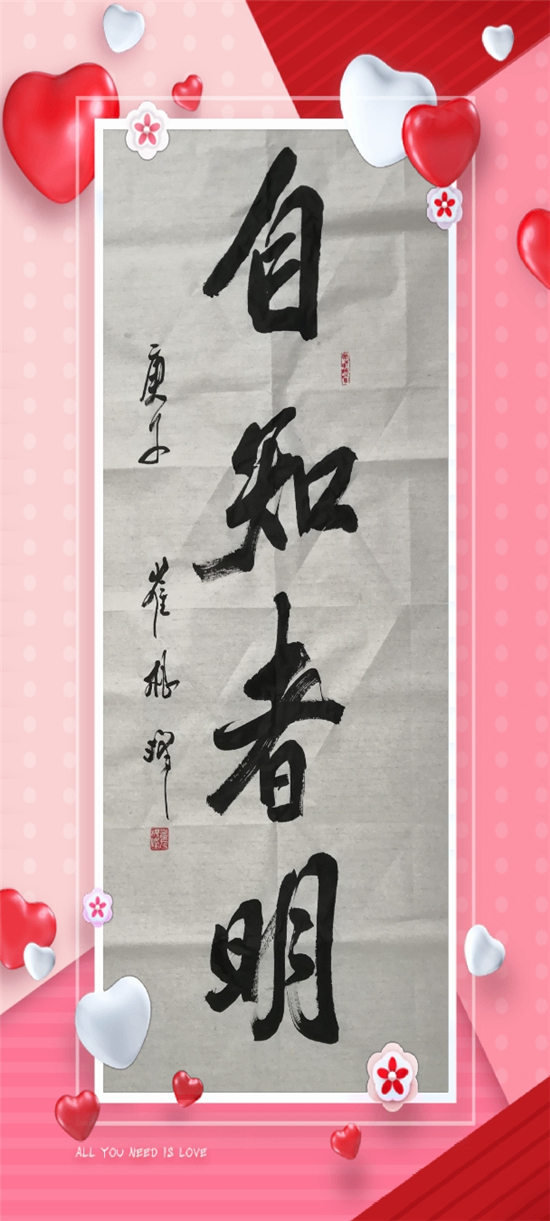 自知者明
庚子 崔
ALL YOU NEED IS LOVE